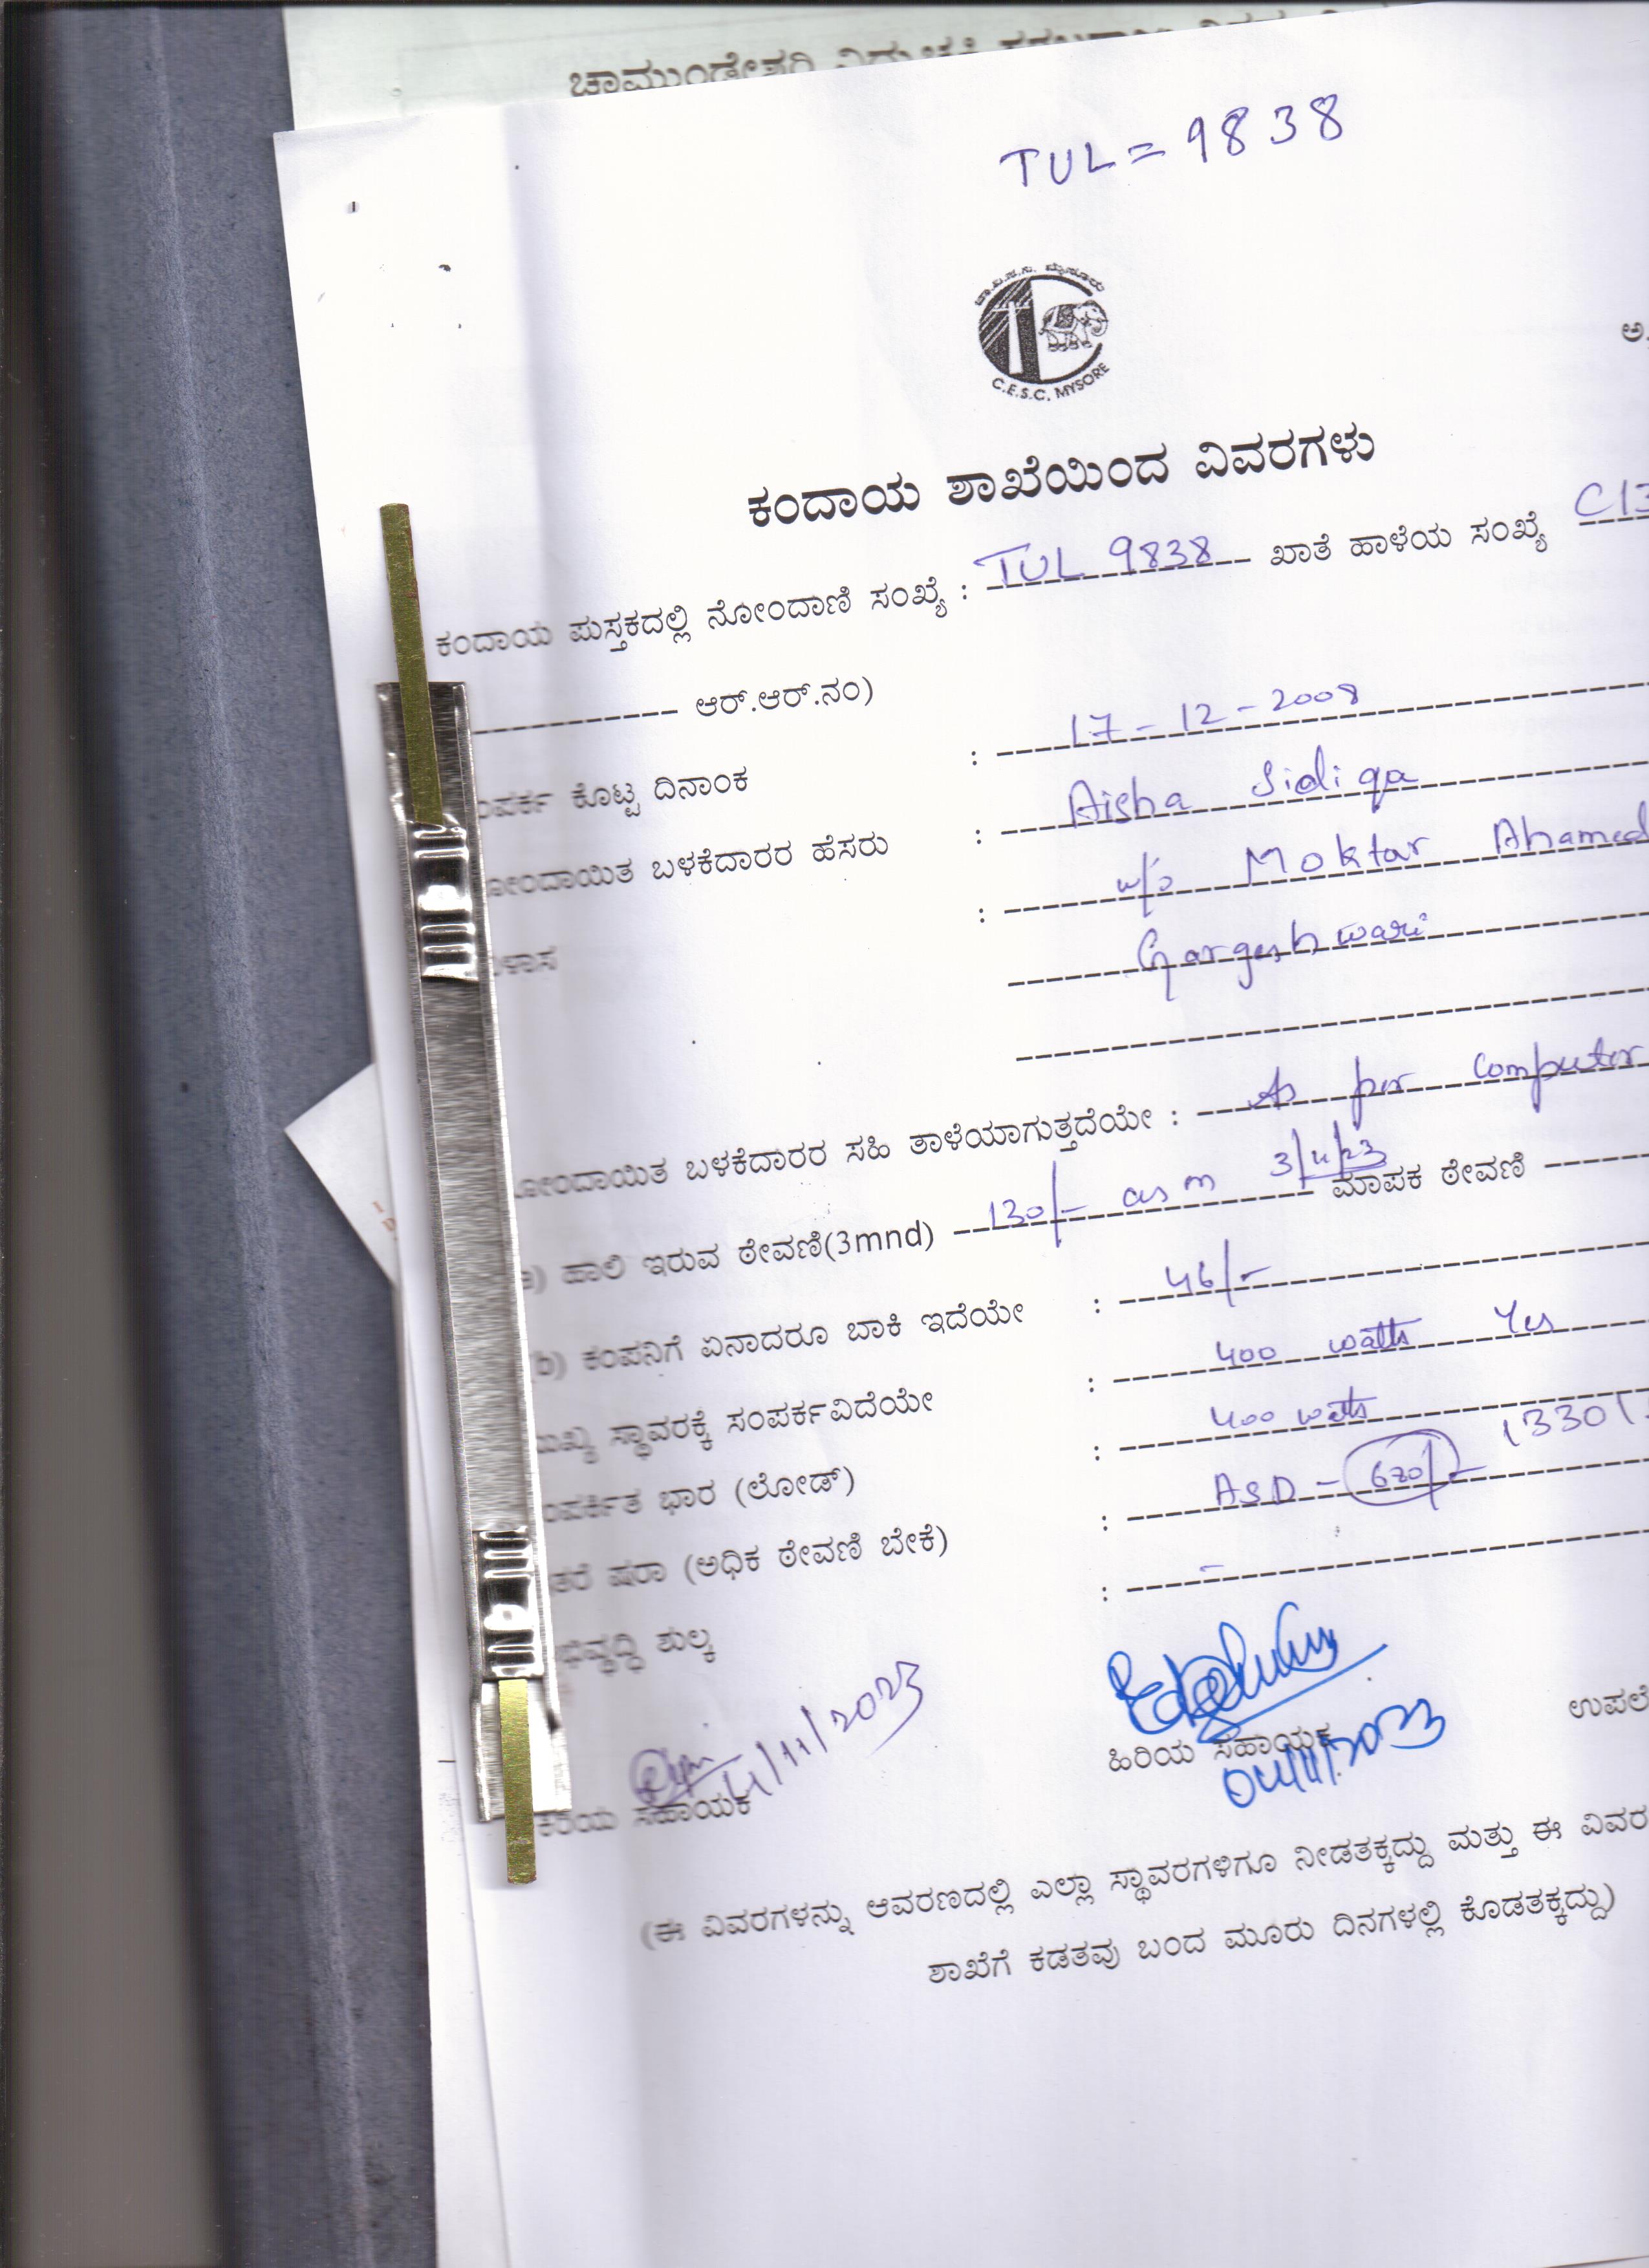 TUL = 9838
C.E.S.C. MYSORE
ಕಂದಾಯ ಶಾಖೆಯಿಂದ ವಿವರಗಳು
ಕಂದಾಯ ಪುಸ್ತಕದಲ್ಲಿ ನೋಂದಾಣಿ ಸಂಖ್ಯೆ : TUL 9838 ಖಾತೆ ಹಾಳೆಯ ಸಂಖ್ಯೆ C13
ಆರ್.ಆರ್.ನಂ)
ಕೊಟ್ಟ ದಿನಾಂಕ : 17-12-2008
ಬಳಕೆದಾರರ ಹೆಸರು : Aisha Sidiqa
: w/o Moktar Ahamed
Gargeshwari
ಬಳಕೆದಾರರ ಸಹಿ ತಾಳೆಯಾಗುತ್ತದೆಯೇ : As per Computer
a) ಹಾಲಿ ಇರುವ ಠೇವಣಿ(3mnd) 130/- as on 3/11/23 ಮಾಪಕ ಠೇವಣಿ
(b) ಕಂಪನಿಗೆ ಏನಾದರೂ ಬಾಕಿ ಇದೆಯೇ : 46/-
ಸ್ಥಾವರಕ್ಕೆ ಸಂಪರ್ಕವಿದೆಯೇ : 400 watts Yes
ಭಾರ (ಲೋಡ್) : 400 watts
ಷರಾ (ಅಧಿಕ ಠೇವಣಿ ಬೇಕೆ) : ASD - 620/- 1330/-
ಶುಲ್ಕ : -
4/11/2023
04/11/2023
ಕಿರಿಯ ಸಹಾಯಕ ಹಿರಿಯ ಸಹಾಯಕ
(ಈ ವಿವರಗಳನ್ನು ಆವರಣದಲ್ಲಿ ಎಲ್ಲಾ ಸ್ಥಾವರಗಳಿಗೂ ನೀಡತಕ್ಕದ್ದು ಮತ್ತು ಈ ವಿವರ
ಶಾಖೆಗೆ ಕಡತವು ಬಂದ ಮೂರು ದಿನಗಳಲ್ಲಿ ಕೊಡತಕ್ಕದ್ದು)